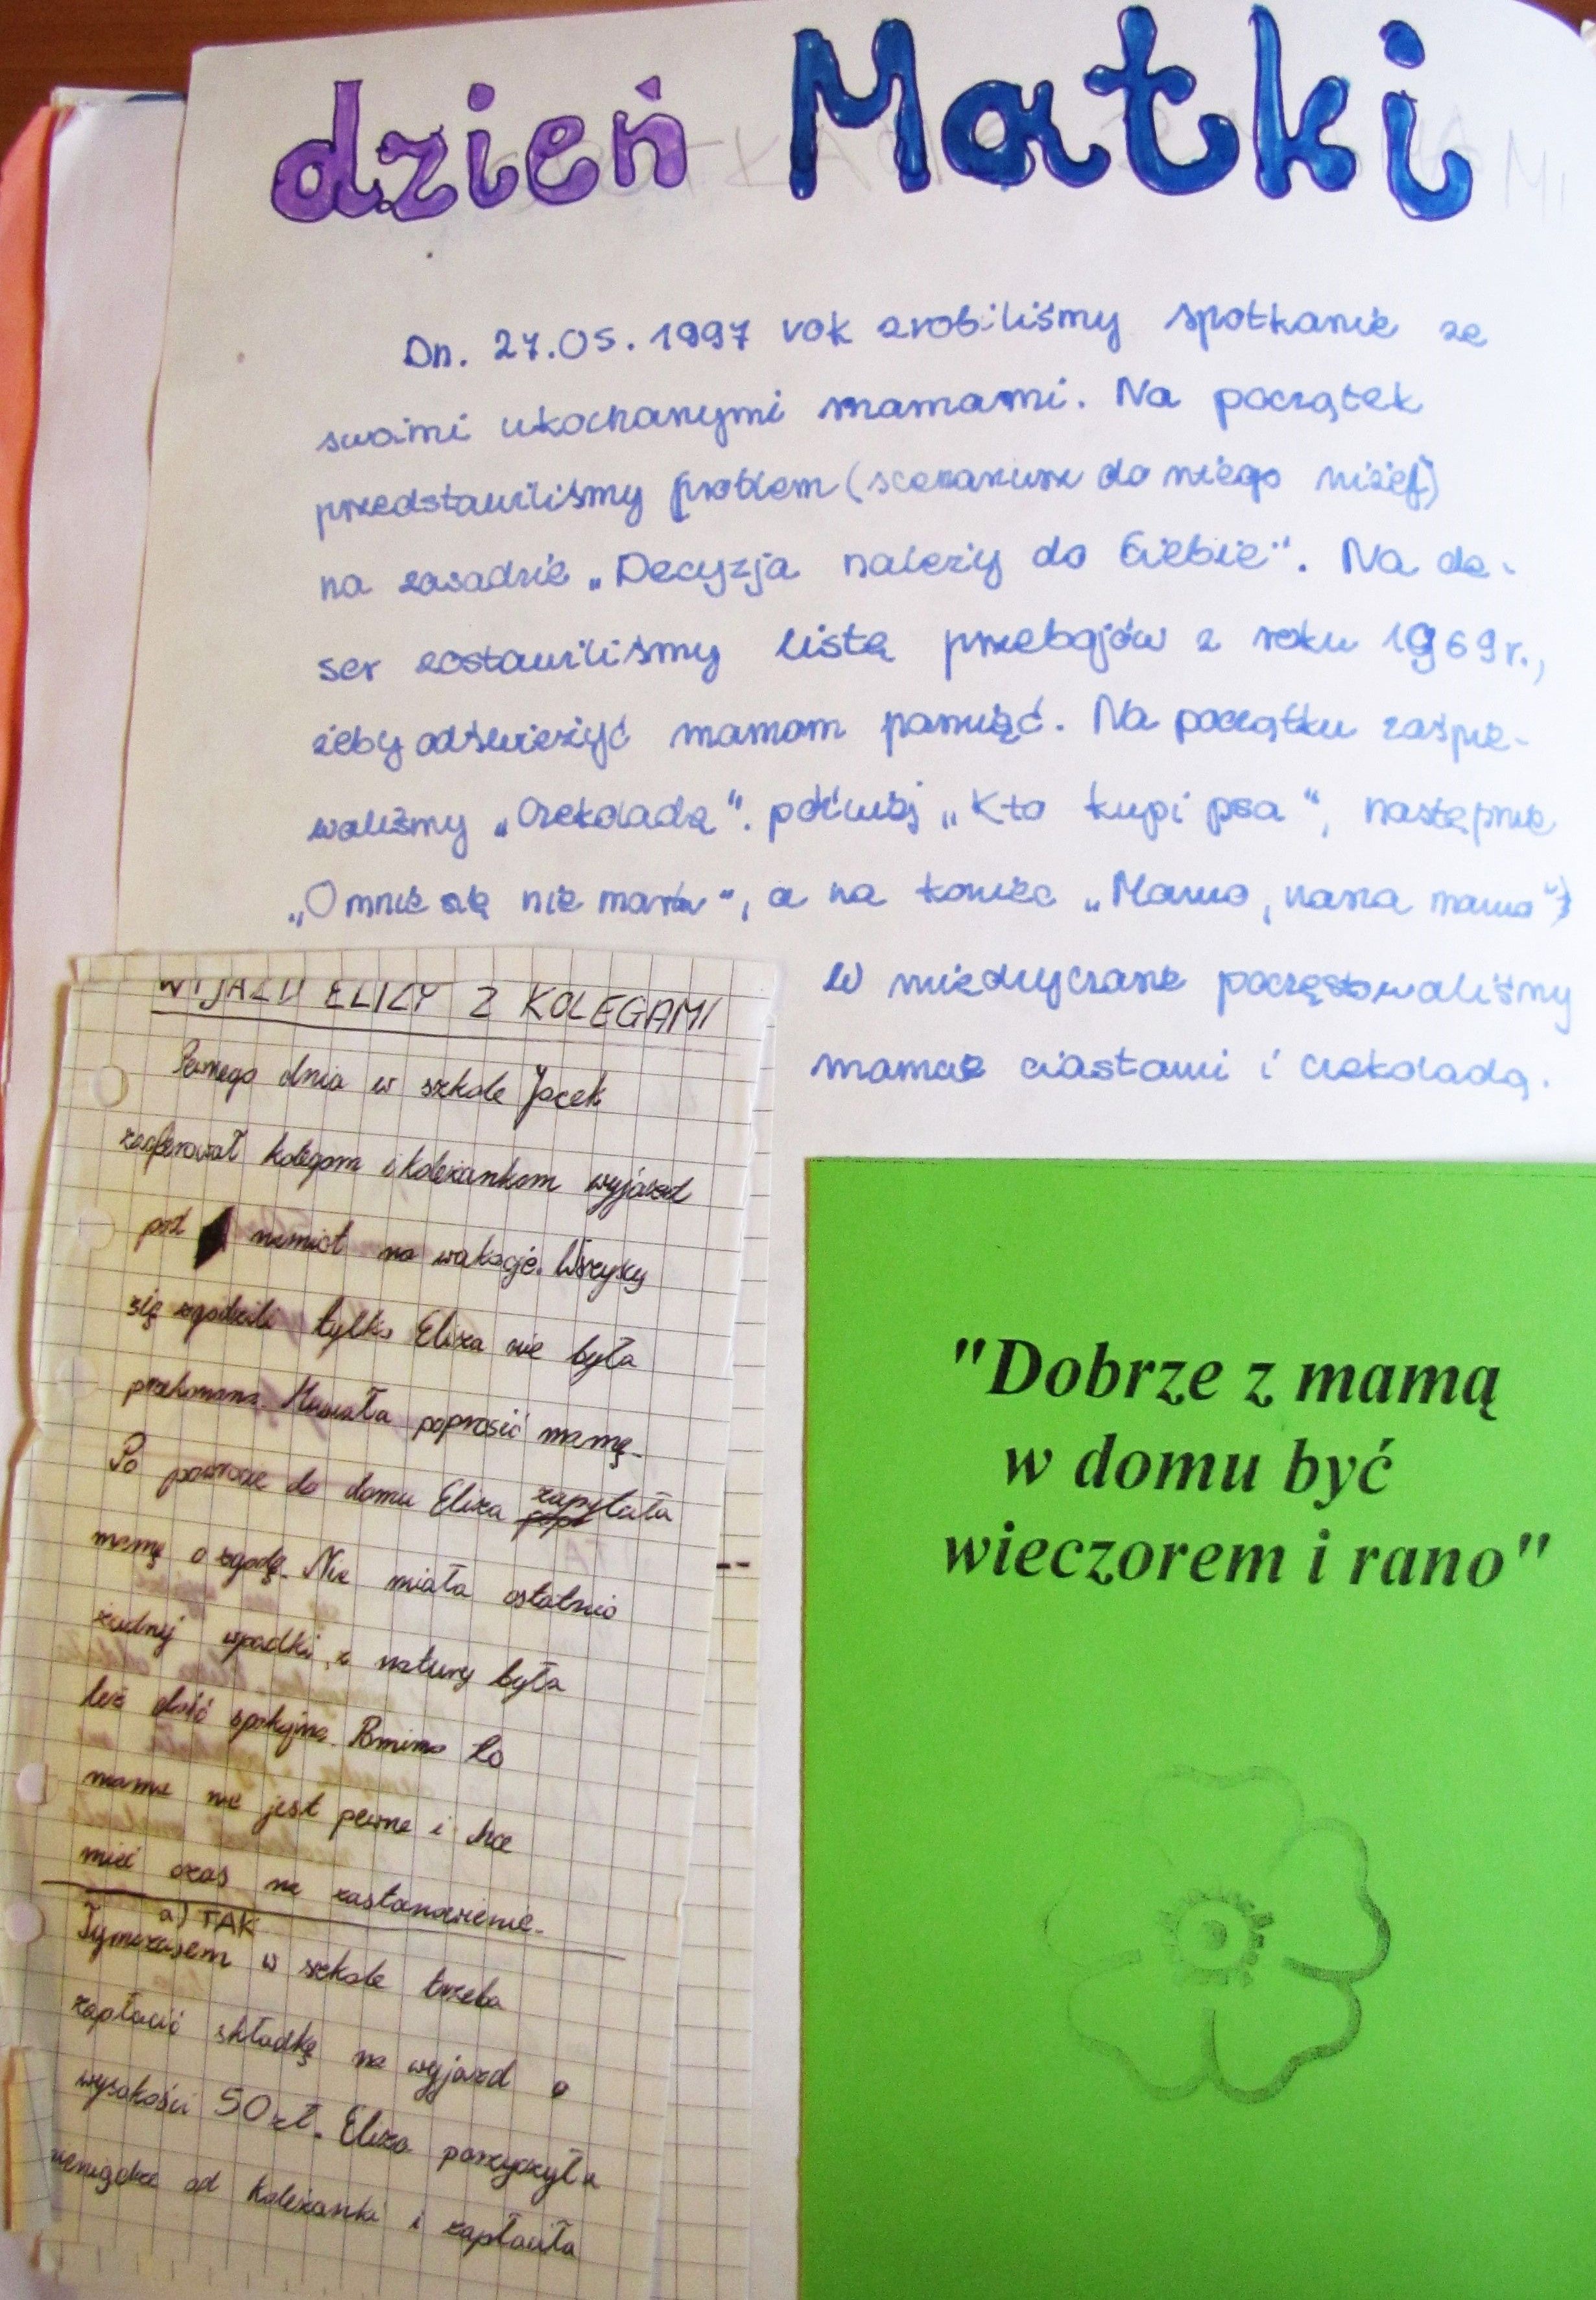 dzień Matki
Dn. 27.05.1997 rok zrobiliśmy spotkanie ze
swoimi ukochanymi mamami. Na początek
przedstawiliśmy problem (scenariusz do niego niżej)
na zasadzie „Decyzja należy do Ciebie". Na de-
ser zostawiliśmy listę przebojów z roku 1969r.,
żeby odświeżyć mamom pamięć. Na początku zaśpie-
waliśmy „Czekoladę". później „Kto kupi psa", następnie
„O mnie się nie martw", a na koniec „Mamo, nasza mamo")
W międzyczasie poczęstowaliśmy
mamusie ciastami i czekoladą.
WYJAZD ELIZY Z KOLEGAMI
Pewnego dnia w szkole Jacek
zaoferował kolegom i koleżankom wyjazd
pod namiot na wakacje. Wszyscy
się zgodzili tylko Eliza nie była
przekonana. Musiała poprosić mamę.
Po powrocie do domu Eliza zapytała
mamę o zgodę. Nie miała ostatnio
żadnej wpadki, z natury była
też dość spokojna. Pomimo to
mama nie jest pewna i chce
mieć czas na zastanowienie.
a) TAK
Tymczasem w szkole trzeba
zapłacić składkę na wyjazd o
wysokości 50 zł. Eliza pożyczyła
pieniądze od koleżanki i zapłaciła
"Dobrze z mamą
w domu być
wieczorem i rano"